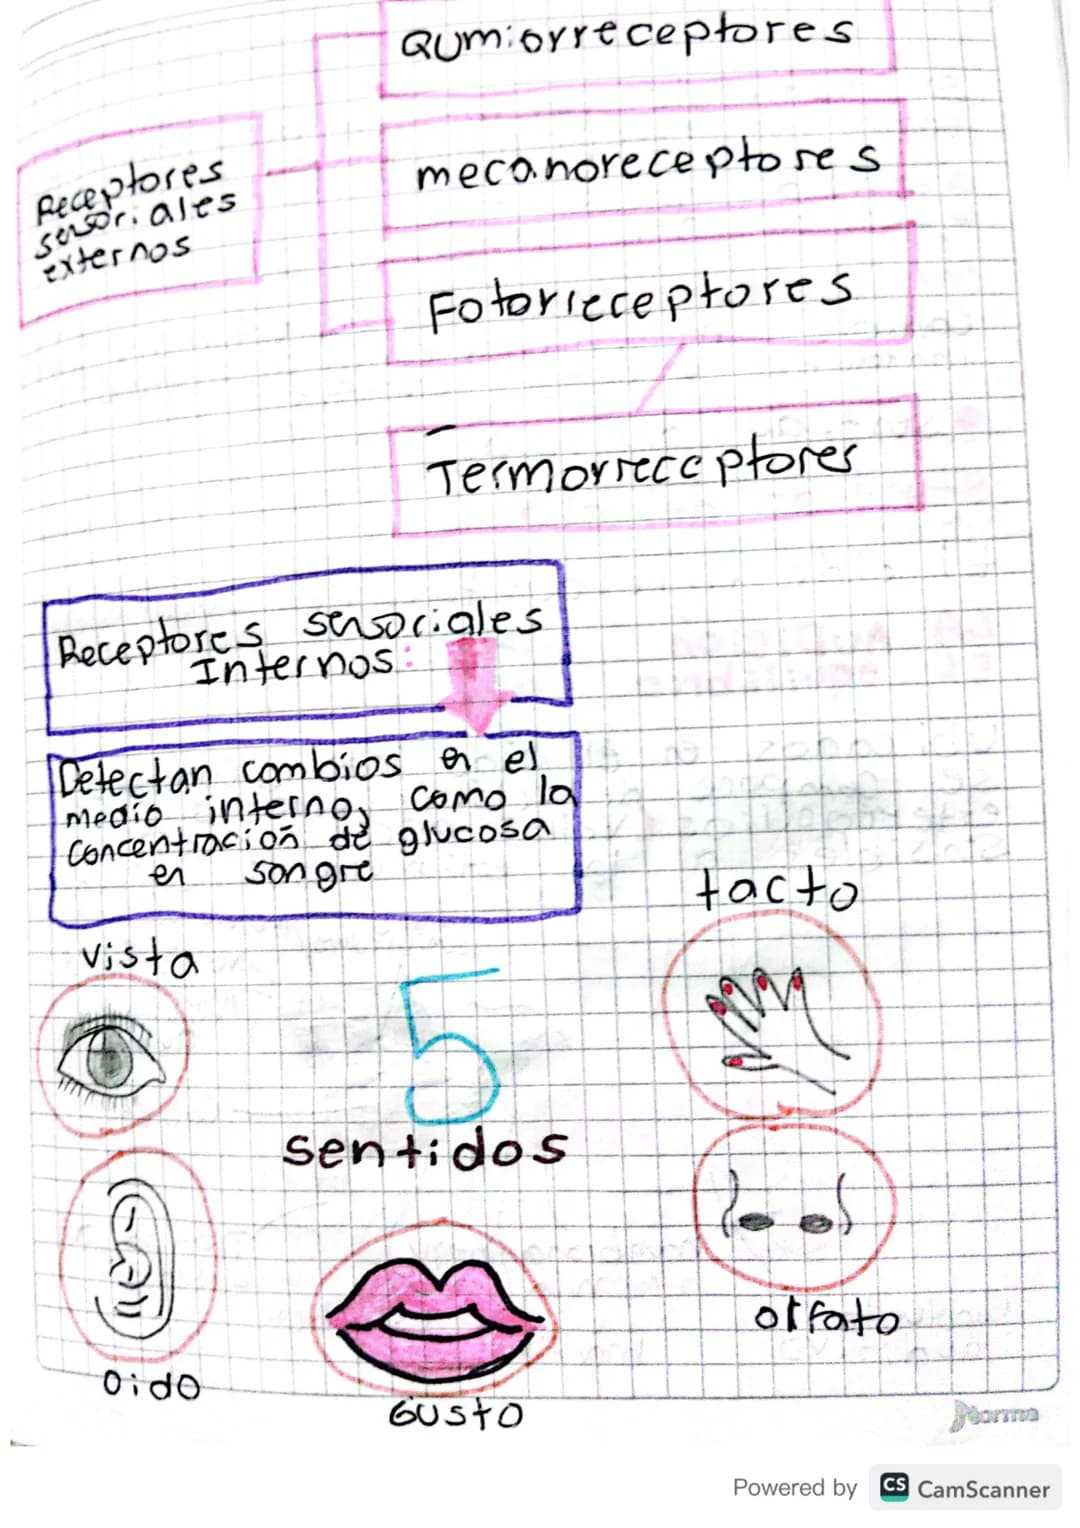 Qumiorreceptores
Receptores
sensoriales
externos
mecanoreceptores
Fotorreceptores
Termorreceptores
Receptores sensoriales
Internos:
Detectan cambios en el
medio interno, como la
concentración de glucosa
en sangre
tacto
vista
5
sentidos
olfato
oido
Gusto
Norma
Powered by CS CamScanner